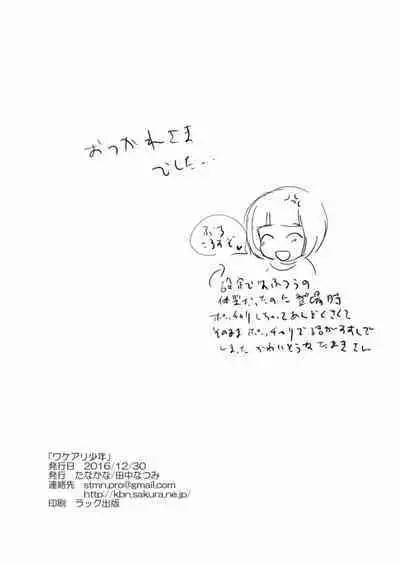 おつかれさま
でした…
ぶち
ころすぞ♥
設定ではふつうの
体型だったのに登場時
ポッチャリしちゃってめんどくさくて
そのままポッチャリで
しました かわいそうなたまきさん
「ワケアリ少年」
発行日　2016/12/30
発行　たなかな/田中なつみ
連絡先　stmn.pro@gmail.com
http://kbn.sakura.ne.jp/
印刷　ラック出版